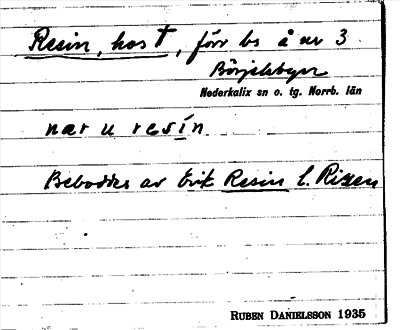 Resin, hos T, förr bs å nr 3
Börjelsbyn
Nederkalix sn o. tg. Norrb. län
nær u resín
Beboddes av Erik Resin l. Rizen
RUBEN DANIELSSON 1935